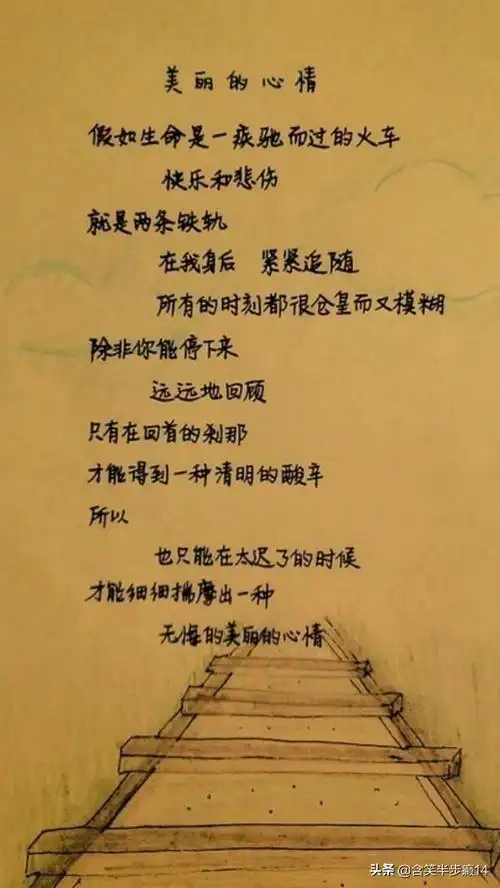 美丽的心情
假如生命是一疾驰而过的火车
快乐和悲伤
就是两条铁轨
在我身后 紧紧追随
所有的时刻都很仓皇而又模糊
除非你能停下来
远远地回顾
只有在回首的刹那
才能得到一种清明的酸辛
所以
也只能在太迟了的时候
才能细细揣摩出一种
无悔的美丽的心情
头条 @含笑半步癫14